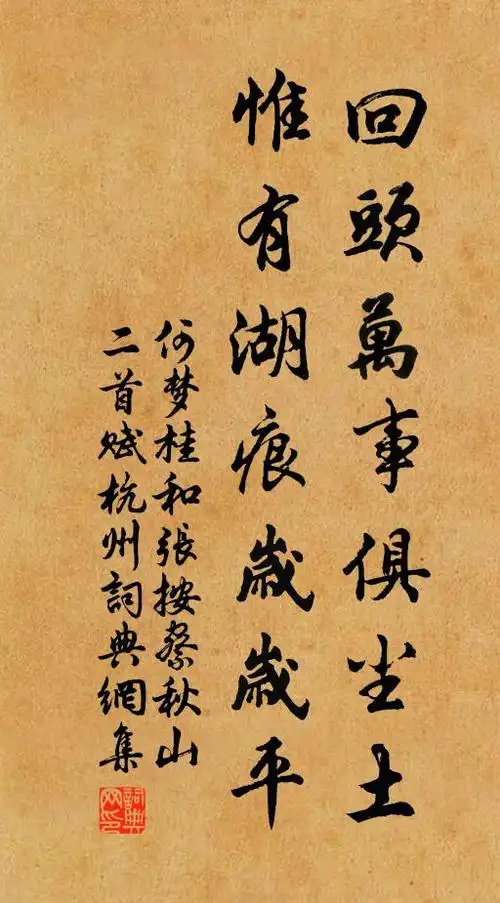 回頭萬事俱尘土
惟有湖痕歲歲平
何梦桂和張按察秋山
二首赋杭州詞典網集
詞典
网印